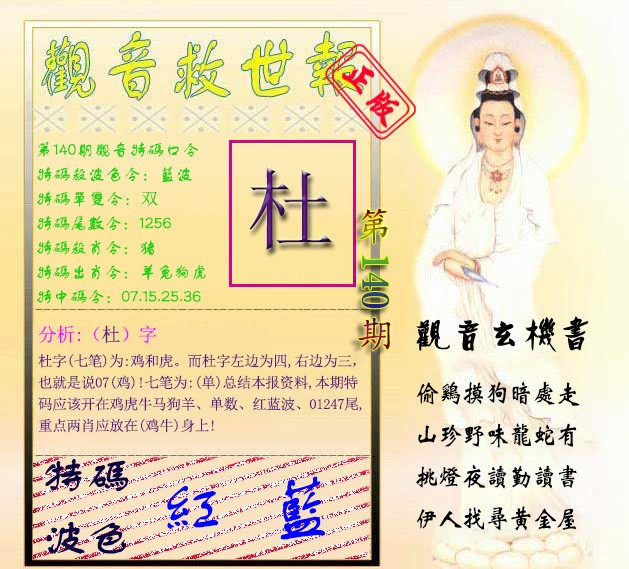 觀音救世報
正版
第140期觀音特碼口令
特碼殺波色令：藍波
特碼單雙令：双
特碼尾數令：1256
特碼殺肖令：豬
特碼出肖令：羊兔狗虎
特中碼令：07.15.25.36
杜
第140期
分析:（杜）字
杜字(七笔)为:鸡和虎。而杜字左边为四,右边为三，
也就是说07(鸡)!七笔为:(单)总结本报资料,本期特
码应该开在鸡虎牛马狗羊、单数、红蓝波、01247尾,
重点两肖应放在(鸡牛)身上!
特碼
波色
紅 藍
觀音玄機書
偷鷄摸狗暗處走
山珍野味龍蛇有
挑燈夜讀勤讀書
伊人找尋黃金屋